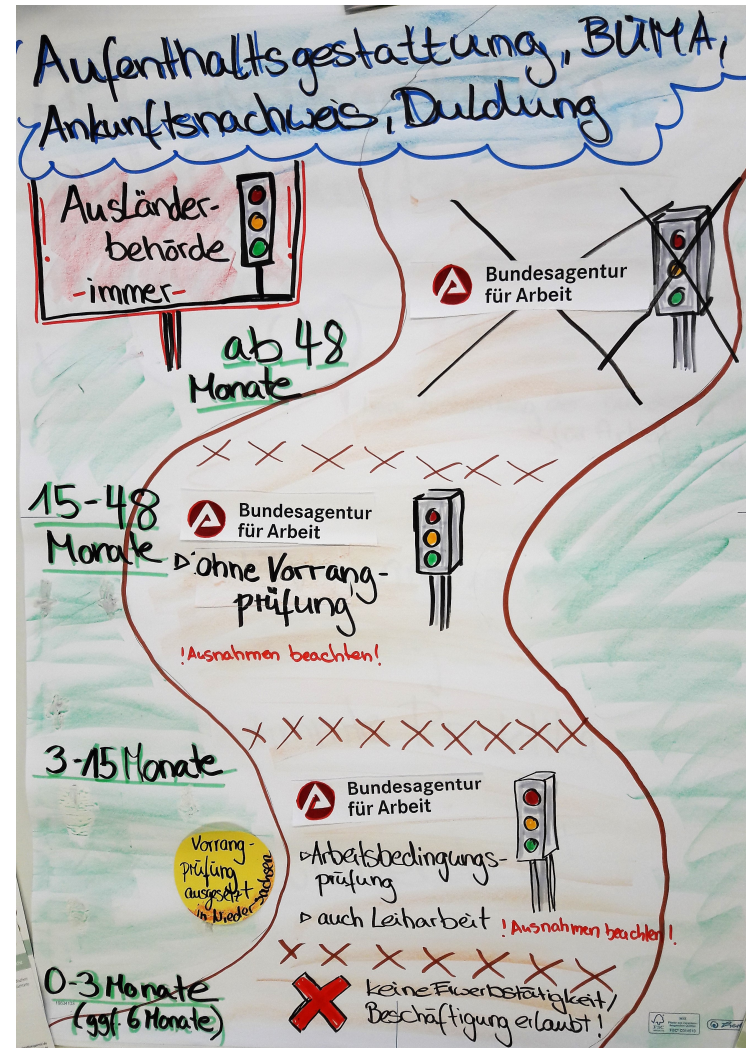 Aufenthaltsgestattung, BÜMA,
Ankunftsnachweis, Duldung
Ausländer-
behörde
-immer-
Bundesagentur
für Arbeit
ab 48
Monate
15-48
Monate
Bundesagentur
für Arbeit
ohne Vorrang-
prüfung
!Ausnahmen beachten!
3-15 Monate
Bundesagentur
für Arbeit
Vorrang-
prüfung
ausgesetzt
in Niedersachsen
Arbeitsbedingungs-
prüfung
auch Leiharbeit
!Ausnahmen beachten!
0-3 Monate
(ggf. 6 Monate)
keine Erwerbstätigkeit/
Beschäftigung erlaubt!
FSC